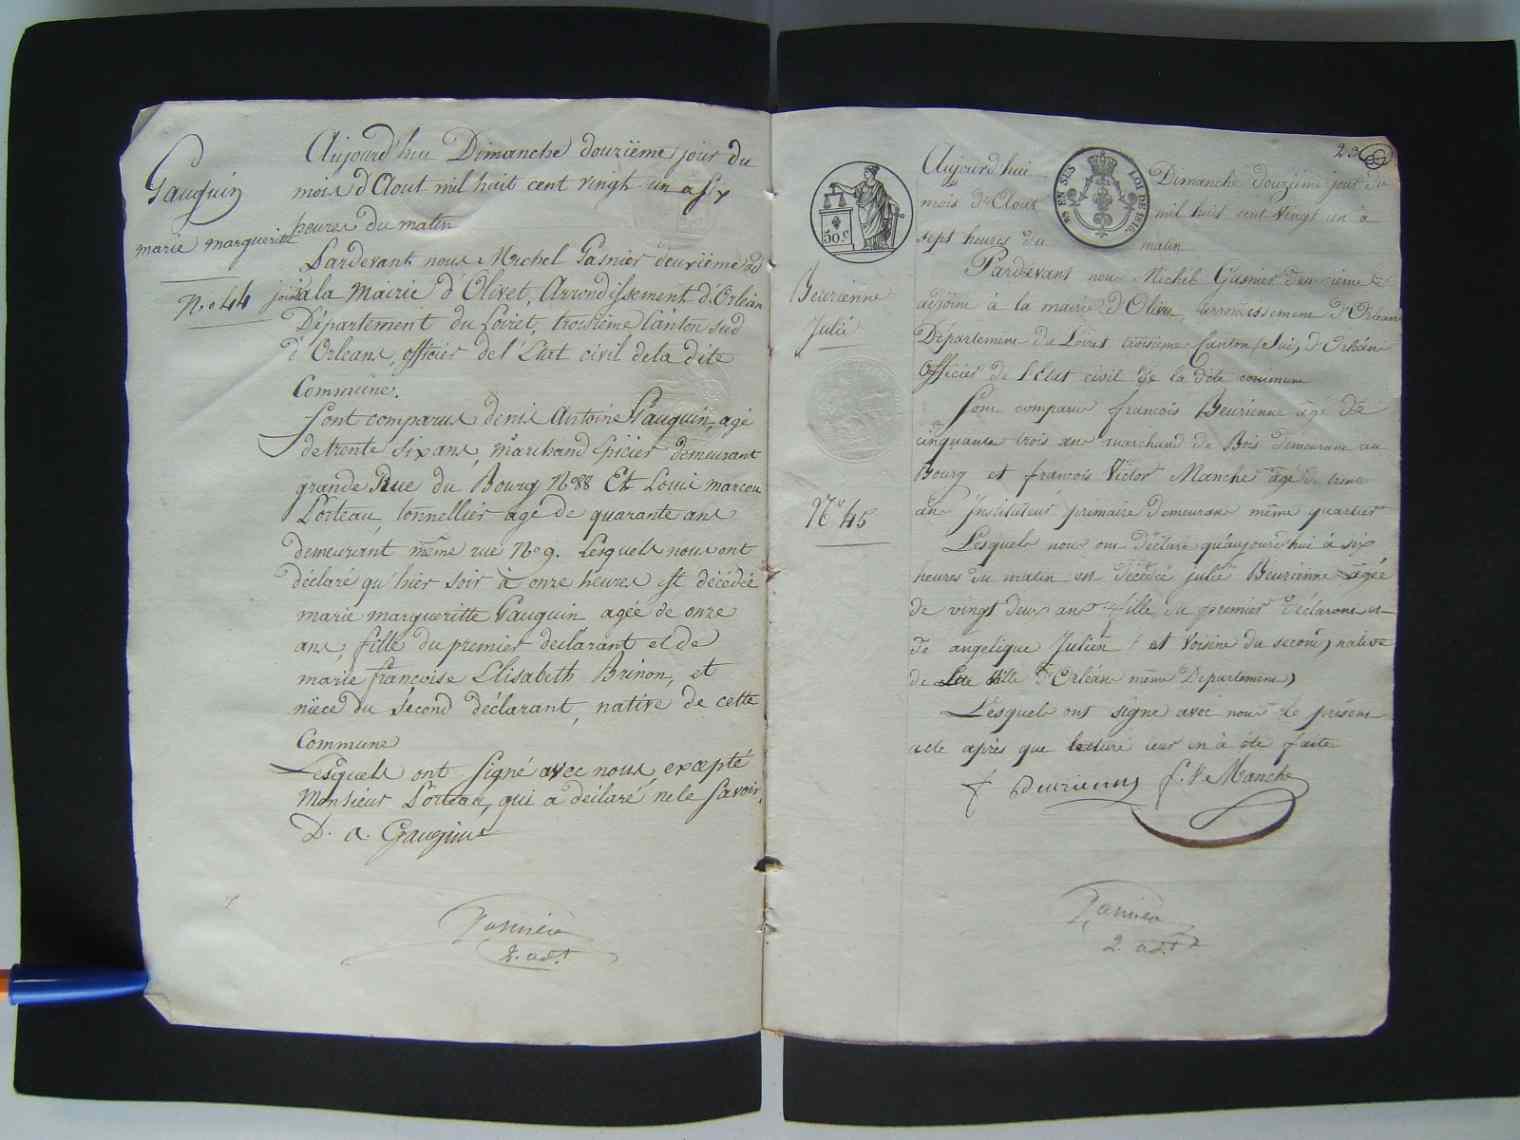 Gauguin
marie margueritte
N.o 44
Aujourd'hui Dimanche douzième jour du
mois d'Aout mil huit cent vingt un a six
heures du matin
Pardevant nous Michel Gasnier deuxième ad
joint à la Mairie d'Olivet, Arrondissement d'Orléans
Département du Loiret, troisième Canton sud
d'Orleans, officier de l'Etat civil de la dite
Commune.
Sont comparus denis Antoine Gauguin, agé
de trente six ans, marchand Epicier demeurant
grande Rue du Bourg N.o 88 Et Louis marcou
Lorteau, tonnellier agé de quarante ans
demeurant même rue N.o 9. Lesquels nous ont
déclaré qu'hier soir à onze heures est décédée
marie margueritte Gauguin agée de onze
ans, fille du premier declarant et de
marie francoise Elisabeth Brinon, et
nièce du Second déclarant, native de cette
Commune
Lesquels ont signé avec nous, excepté
Monsieur Lorteau, qui a déclaré ne le savoir.
D. a. Gauguin
Gasnier
2. adt
23
Beurienne
Julie
N.o 45
50 c
EN SUS
LOI DE 1816.
Aujourd'hui Dimanche douzième jour du
mois d'Aout mil huit cent vingt un à
sept heures du matin
Pardevant nous Michel Gasnier deuxième
adjoint à la mairie d'Olivet, arrondissement d'Orléans
Département du Loiret troisième Canton, Sud, d'Orléans
Officier de l'Etat civil de la dite commune
Sont comparus françois Beurienne agé de
cinquante trois ans marchand de Bois demeurant au
Bourg et françois Victor Manche agé de trente
ans Instituteur primaire demeurant même quartier
Lesquels nous ont déclaré qu'aujourd'hui à six
heures du matin est décédée julie Beurienne agée
de vingt deux ans fille du premier déclarant et
de angelique Julien et voisine du second, native
de ville d'Orléans même Departement,
Lesquels ont signé avec nous le présent
acte après que lecture leur en à été faite
f Beurienne f. V. Manche
Gasnier
2. adt